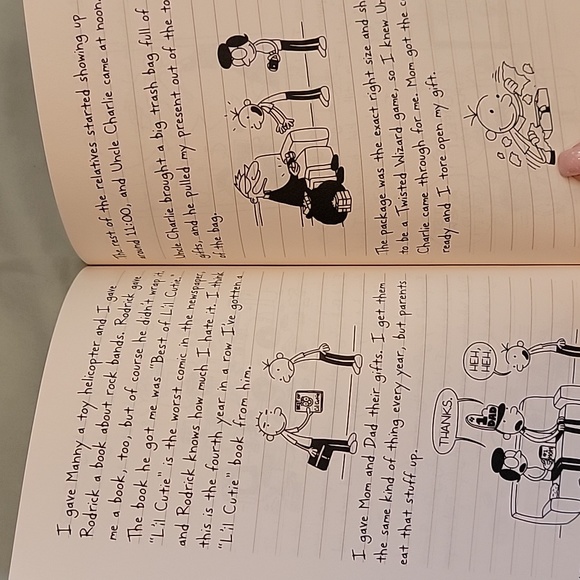 I gave Manny a toy helicopter and I gave
Rodrick a book about rock bands. Rodrick gave
me a book, too, but of course he didn't wrap it.
The book he got me was "Best of L'il Cutie."
"L'il Cutie" is the worst comic in the newspaper,
and Rodrick knows how much I hate it. I think
this is the fourth year in a row I've gotten a
"L'il Cutie" book from him.
I gave Mom and Dad their gifts. I get them
the same kind of thing every year, but parents
eat that stuff up.
THANKS.
HEH,
HEH.
#1
DAD
The rest of the relatives started showing up
around 11:00, and Uncle Charlie came at noon.
Uncle Charlie brought a big trash bag full of
gifts, and he pulled my present out of the to
of the bag.
The package was the exact right size and sh
to be a Twisted Wizard game, so I knew Un
Charlie came through for me. Mom got the c
ready and I tore open my gift.